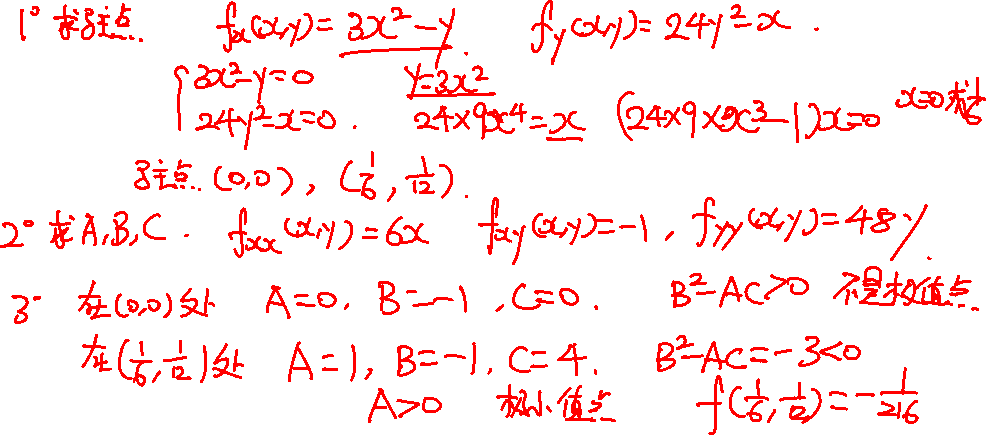 1° 求驻点. fx(x,y)=3x²-y. fy(x,y)=24y²-x.
{3x²-y=0 y=3x²
24y²-x=0. 24×9x⁴=x (24×9×x³-1)x=0 x=0或1/6
驻点.(0,0),(1/6,1/12).
2° 求A,B,C. fxx(x,y)=6x fxy(x,y)=-1, fyy(x,y)=48y.
3° 在(0,0)处 A=0, B=-1, C=0. B²-AC>0 不是极值点.
在(1/6,1/12)处 A=1, B=-1, C=4. B²-AC=-3<0
A>0 极小值点 f(1/6,1/12)=-1/216